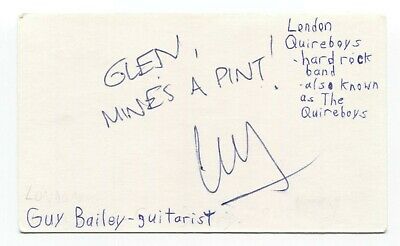 GLEN,
MINES A PINT!
Guy
London
Quireboys
-hard rock
band
-also known
as The
Quireboys
Guy Bailey-guitarist